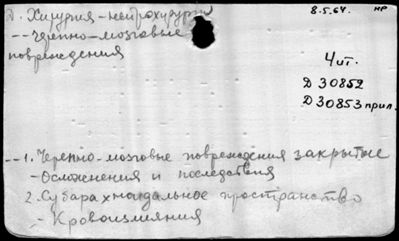 Д. Хирургия-нейрохирургия
8.5.64. НР
-- Черепно-мозговые
повреждения
4 шт.
Д 30852
Д 30853 прил.
-- 1. Черепно-мозговые повреждения закрытые
- Осложнения и последствия
2. Субарахноидальное пространство
- Кровоизлияния